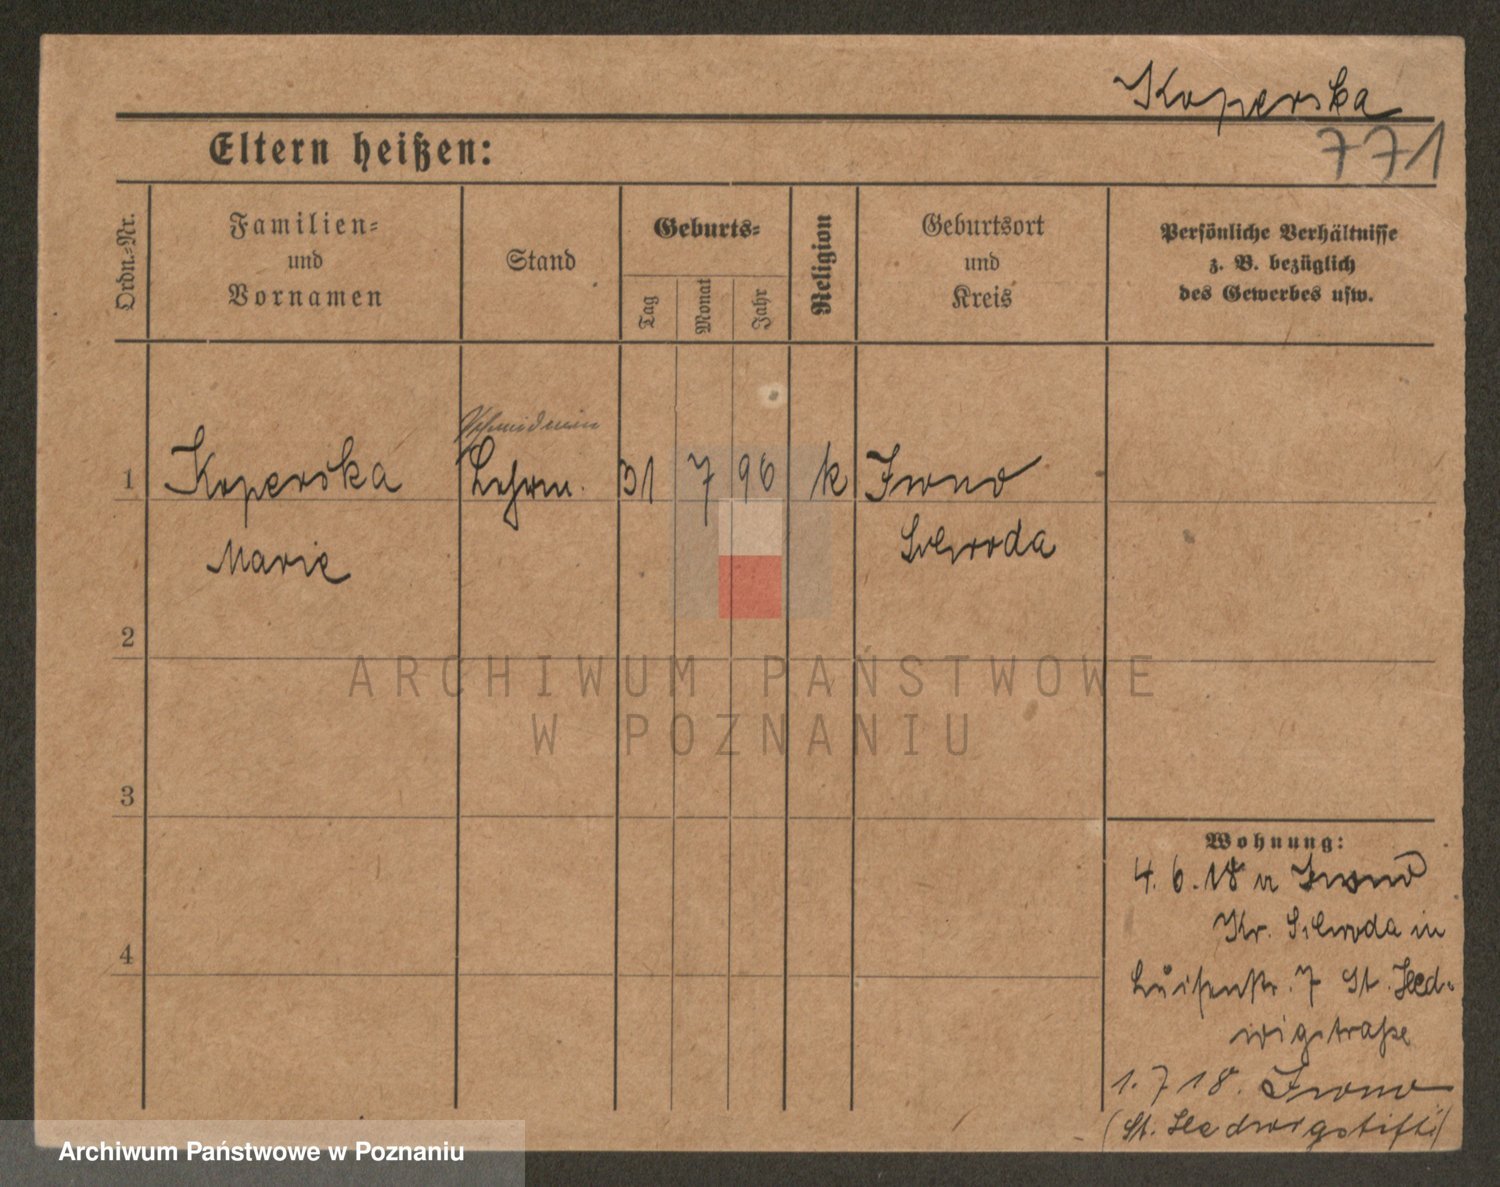 Koperska
771
Eltern heißen:
Ordn.-Nr.
Familien-
und
Vornamen
Stand
Geburts-
Tag
Monat
Jahr
Religion
Geburtsort
und
Kreis
Persönliche Verhältnisse
z. B. bezüglich
des Gewerbes usw.
1
Koperska
Marie
31 7 96 k
Schroda
2
3
4
ARCHIWUM PAŃSTWOWE
W POZNANIU
Wohnung:
4. 6. 18 v
Kr. Schroda in
Luisenstr. 7 St. Hed-
wigstraße
1. 7 18.
(St. Hedwigstift)
Archiwum Państwowe w Poznaniu